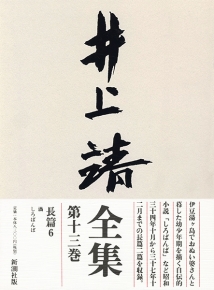 井上靖
全集
第十三巻
伊豆湯ヶ島でおぬい婆さんと
暮した幼少年期を描く自伝的
小説「しろばんば」など昭和
三十四年十月から三十七年十
二月までの長篇二篇を収録。
長篇6
しろばんば
新潮社版